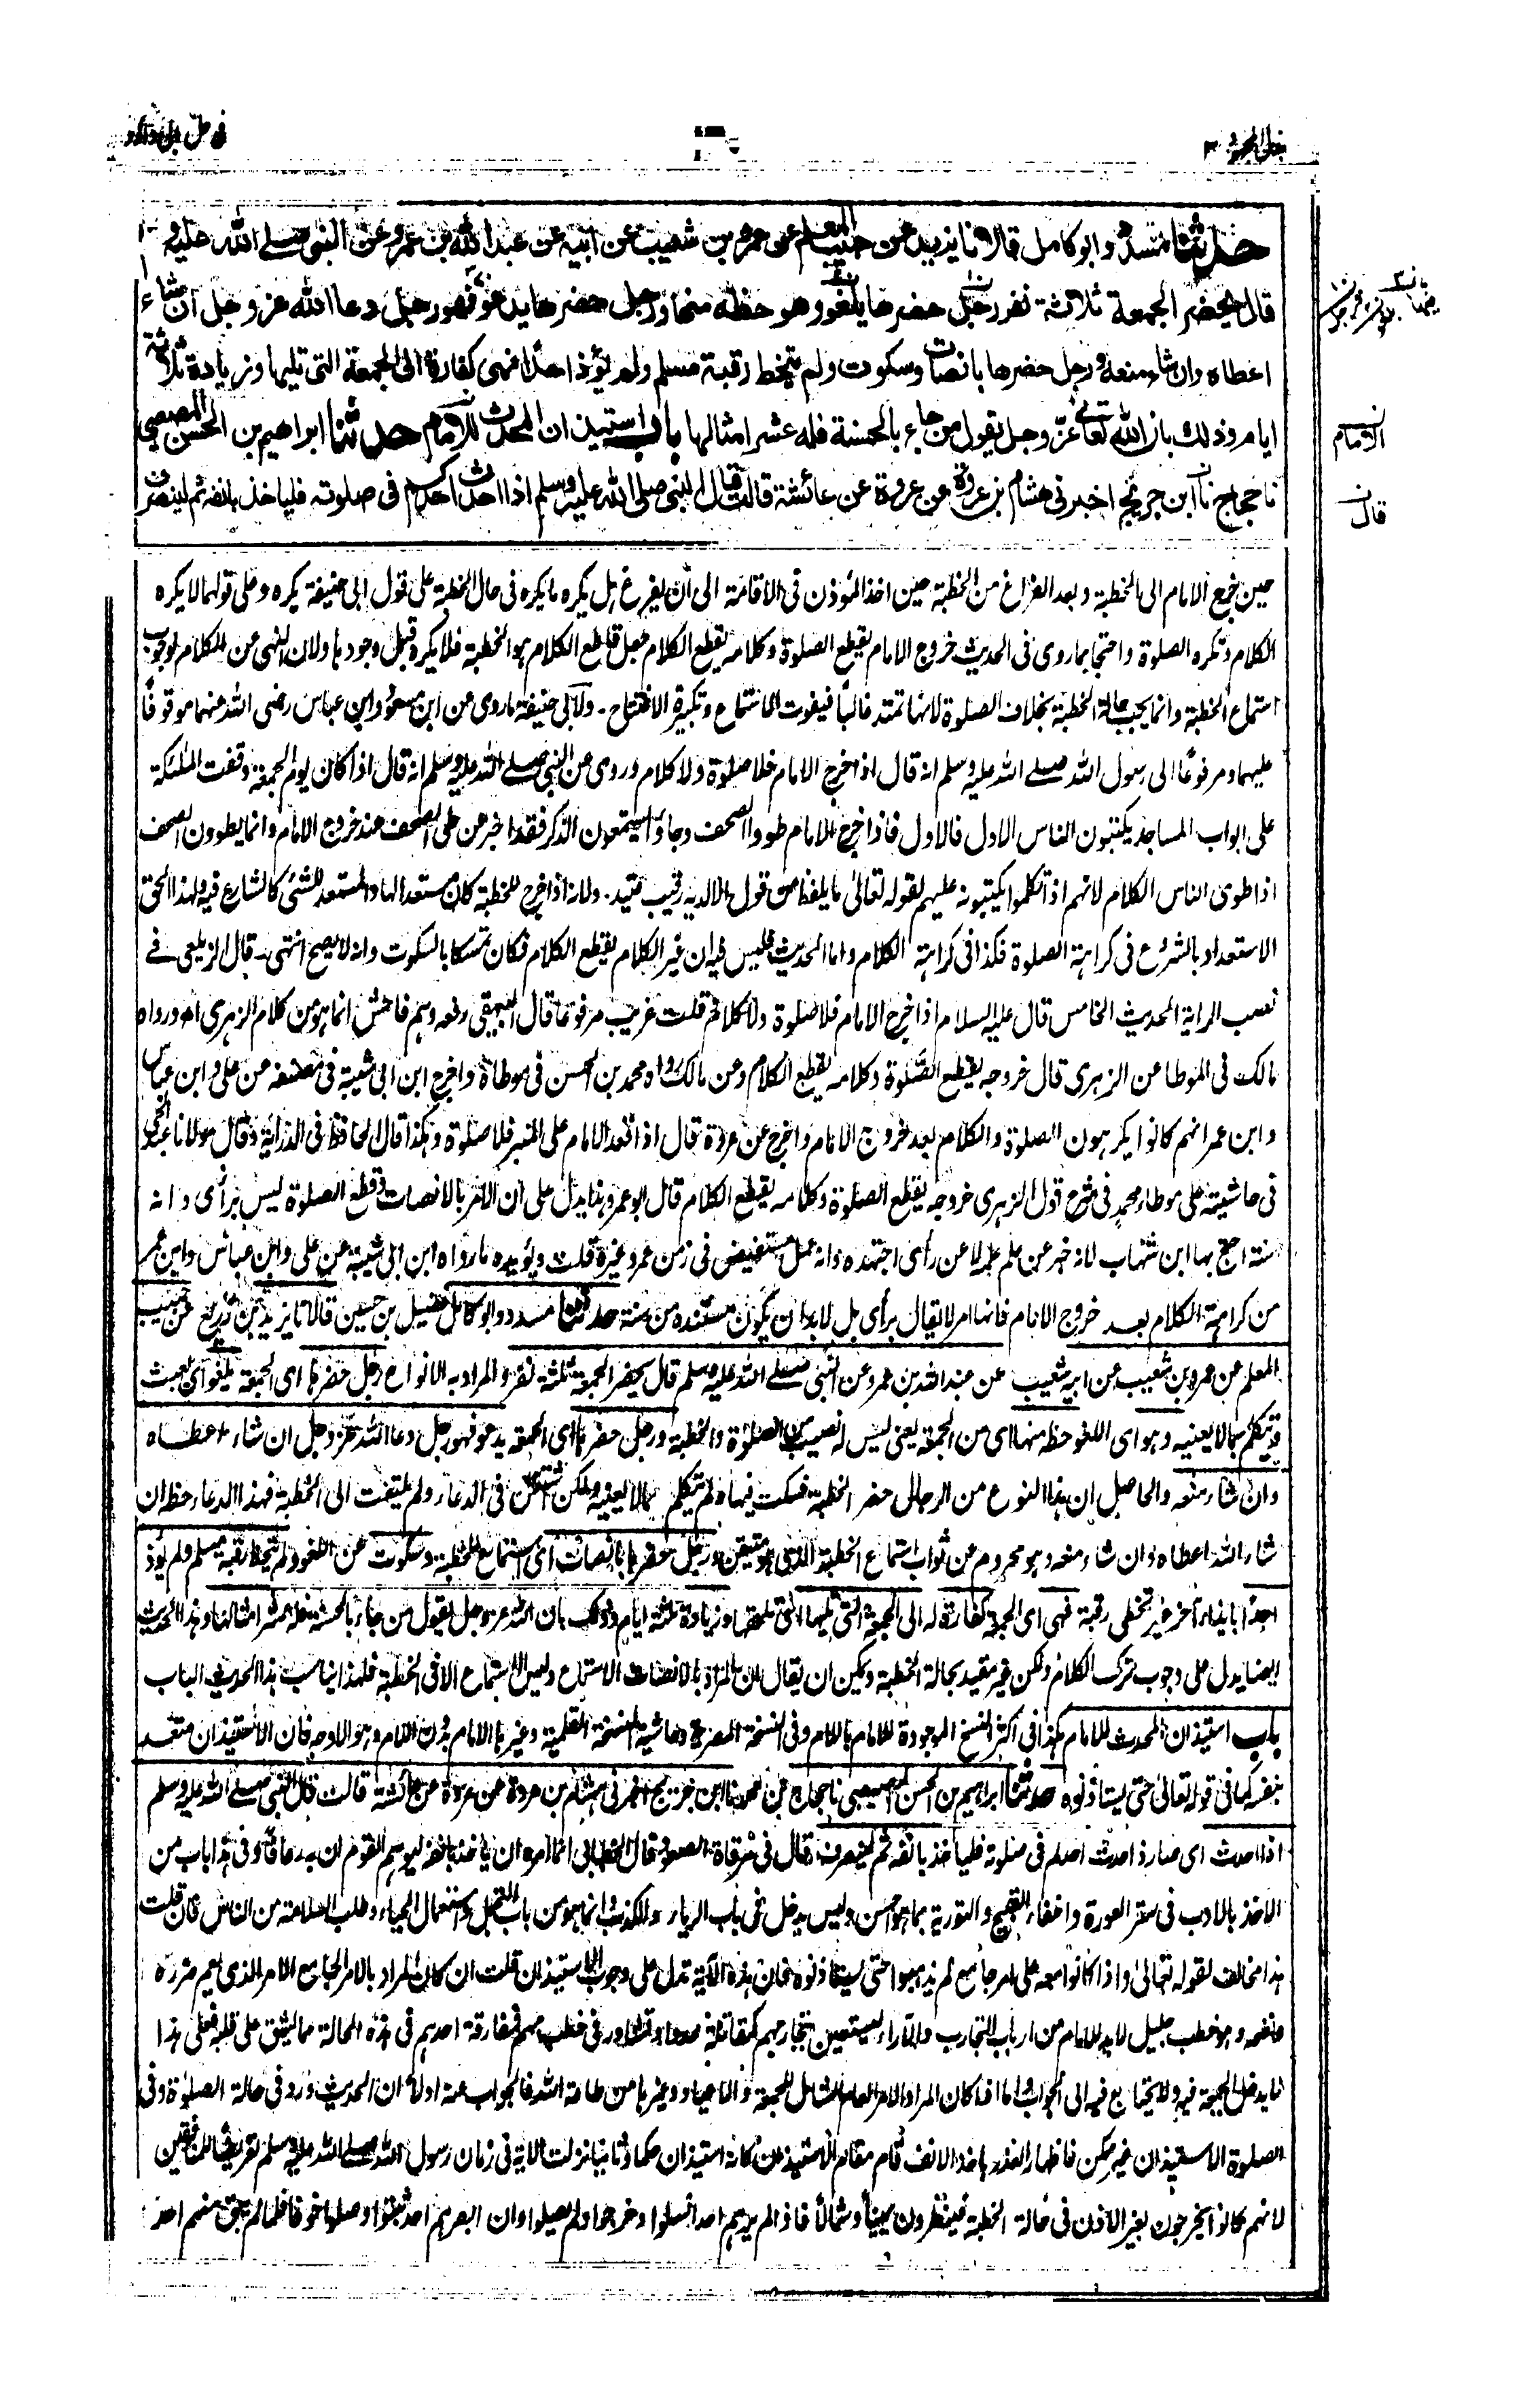 بذل المجهود
في حل ابي داود
حدثنا مسدد وابو كامل قالا نا يزيد عن حبيب المعلم عن عمرو بن شعيب عن ابيه عن عبد الله بن عمرو عن النبي صلے الله عليه و
قال يحضر الجمعة ثلاثة نفر رجل حضرها يلغو وهو حظه منها ورجل حضرها يدعو فهو رجل دعا الله عز وجل ان شاء
اعطاه وان شاء منعه ورجل حضرها بانصات وسكوت ولم يتخط رقبة مسلم ولم يؤذ احدا فهي كفارة الى الجمعة التي تليها وزيادة ثلاثة
ايام وذلك بان الله تعالى عز وجل يقول من جاء بالحسنة فله عشر امثالها باب استيذان المحدث للامام حدثنا ابراهيم بن الحسن المصيصي
نا حجاج نا ابن جريج اخبرني هشام بن عروة عن عروة عن عائشة قالت قال النبي صلى الله عليه وسلم اذا احدث احدكم في صلوته فلياخذ بانفه ثم لينصرف
الامام
قال
حين خرج الامام الى الخطبة وبعد الفراغ من الخطبة حين اخذ المؤذن في الاقامة الى ان يفرغ هل يكره ما يكره في حال الخطبة على قول ابي حنيفة يكره وعلى قولهما لا يكره
الكلام وتكره الصلوة واحتجا بما روى في الحديث خروج الامام يقطع الصلوة وكلامه يقطع الكلام جعل قاطع الكلام هو الخطبة فلا يكره قبل وجودها ولان النهي عن الكلام لوجوب
استماع الخطبة وانما يجب حالة الخطبة بخلاف الصلوة لانها تمتد غالبا فيفوت الاستماع وتكبيرة الافتتاح - ولابي حنيفة ما روى عن ابن مسعود وابن عباس رضى الله عنهما موقوفا
عليهما ومرفوعا الى رسول الله صلے الله عليه وسلم انه قال اذا خرج الامام فلا صلوة ولا كلام وروى عن النبي صلے الله عليه وسلم انه قال اذا كان يوم الجمعة وقفت الملئكة
على ابواب المساجد يكتبون الناس الاول فالاول فاذا خرج الامام طووا الصحف وجاؤا يستمعون الذكر فقد اخبر عن طى الصحف عند خروج الامام وانما يطوون الصحف
اذا طوى الناس الكلام لانهم اذا تكلموا يكتبونه عليهم لقوله تعالى ما يلفظ من قول الا لديه رقيب عتيد - ولانه اذا خرج للخطبة كان مستعدا لها والمستعد للشئ كالشارع فيه ولهذا الحق
الاستعداد بالشروع في كراهة الصلوة فكذا في كراهة الكلام واما الحديث فليس فيه ان غير الكلام يقطع الكلام فكان تمسكا بالسكوت وانه لا يصح انتهى - قال الزيلعي في
نصب الراية الحديث الخامس قال عليه السلام اذا خرج الامام فلا صلوة ولا كلام قلت غريب مرفوعا قال البيهقي رفعه وهم فاحش انما هو من كلام الزهرى اه ورواه
مالك في الموطا عن الزهرى قال خروجه يقطع الصلوة وكلامه يقطع الكلام وعن مالك رواه محمد بن الحسن في موطاه واخرج ابن ابي شيبة في مصنفه عن على وابن عباس
وابن عمر انهم كانوا يكرهون الصلوة والكلام بعد خروج الامام واخرج عن عروة قال اذا قعد الامام على المنبر فلا صلوة وهكذا قال الحافظ في الدراية وقال مولانا عبد الحي
في حاشيته على موطا محمد في شرح قول الزهرى خروجه يقطع الصلوة وكلامه يقطع الكلام قال ابو عمر وهذا يدل على ان الامر بالانصات وقطع الصلوة ليس برأى وانه
سنة احتج بها ابن شهاب لانه خبر عن علم علمه لا عن رأى اجتهده وانه عمل مستفيض في زمن عمر وغيره قلت ويؤيده ما رواه ابن ابي شيبة عن على وابن عباس وابن عمر
من كراهة الكلام بعد خروج الامام فانها امر لا يقال برأى بل لا بد ان يكون مستنده من سنة حدثنا مسدد وابو كامل فضيل بن حسين قالا نا يزيد بن زريع عن حبيب
المعلم عن عمرو بن شعيب عن ابيه شعيب عن عبد الله بن عمرو عن النبي صلے الله عليه وسلم قال يحضر الجمعة ثلثة نفر والمراد به الانواع رجل حضرها اى الجمعة يلغو اى يعبث
ويتكلم بما لا يعنيه وهو اى اللغو حظه منها اى من الجمعة يعني ليس له نصيب من الصلوة والخطبة ورجل حضرها اى الجمعة يدعو فهو رجل دعا الله عز وجل ان شاء اعطاه
وان شاء منعه والحاصل ان هذا النوع من الرجال حضر الخطبة فسكت فيها ولم يتكلم بما لا يعنيه ولكن اشتغل في الدعاء ولم يلتفت الى الخطبة فهذا الدعاء حظه ان
شاء الله اعطاه وان شاء منعه وهو محروم عن ثواب استماع الخطبة الذي هو متيقن ورجل حضرها بانصات اى استماع للخطبة وسكوت عن اللغو ولم يتخط رقبة مسلم ولم يؤذ
احدا بايذاء آخر غير تخطى رقبة فهي اى الجمعة كفارة له الى الجمعة التي تليها اى تلحقها وزيادة ثلثة ايام وذلك بان الله عز وجل يقول من جاء بالحسنة فله عشر امثالها وهذا الحديث
ايضا يدل على وجوب ترك الكلام ولكن غير مقيد بحالة الخطبة ويمكن ان يقال ان المراد بالانصات الاستماع وليس الاستماع الا في الخطبة فلهذا يناسب هذا الحديث الباب
باب استيذان المحدث للامام هكذا في اكثر النسخ الموجودة للامام باللام وفي النسخة المصرية وحاشية النسخة القلمية وغيرها الامام بدون اللام وهو الاوجه فان الاستيذان متعد
بنفسه كما في قوله تعالى حتى يستأذنوه حدثنا ابراهيم بن الحسن المصيصي نا حجاج بن محمد نا ابن جريج اخبرني هشام بن عروة عن عروة عن عائشة قالت قال النبي صلے الله عليه وسلم
اذا احدث اى صار ذا حدث احدكم في صلوته فلياخذ بانفه ثم لينصرف قال في مرقاة الصعود قال الخطابي انما امره ان ياخذ بانفه ليوهم القوم ان به رعافا وفي هذا باب من
الاخذ بالادب في ستر العورة واخفاء القبيح والتورية بما هو احسن وليس يدخل في باب الرياء والكذب وانما هو من باب التجمل واستعمال الحياء وطلب السلامة من الناس فان قلت
هذا مخالف لقوله تعالى واذا كانوا معه على امر جامع لم يذهبوا حتى يستاذنوه فان هذه الآية تدل على وجوب الاستيذان قلت ان كان المراد بالامر الجامع الامر الذي يعم ضرره
ونفعه وهو خطب جليل لا بد للامام من ارباب التجارب والآراء ليستعين بتجاربهم كمقاتلة عدو او تشاور في خطب مهم فمفارقة احدهم في هذه الحالة مما يشق على قلبه فعلى هذا
لا يدخل الجمعة فيه ولا يحتاج فيه الى الجواب واما اذا كان المراد الامر العام الشامل للجمعة والاعياد وغيرها من طاعة الله فالجواب عنه اولا ان الحديث ورد في حالة الصلوة وفي
الصلوة الاستيذان غير ممكن فاظهار العذر باخذ الانف قام مقام الاستيذان فكانه استيذان حكما وثانيا نزلت الآية في زمان رسول الله صلے الله عليه وسلم تعريضا للمنافقين
لانهم كانوا يخرجون بغير الاذن في حالة الخطبة فينظرون يمينا وشمالا فاذا لم يرهم احد انسلوا وخرجوا ولم يصلوا وان ابصرهم احد ثبتوا وصلوا خوفا فلما لم يبق منهم احد